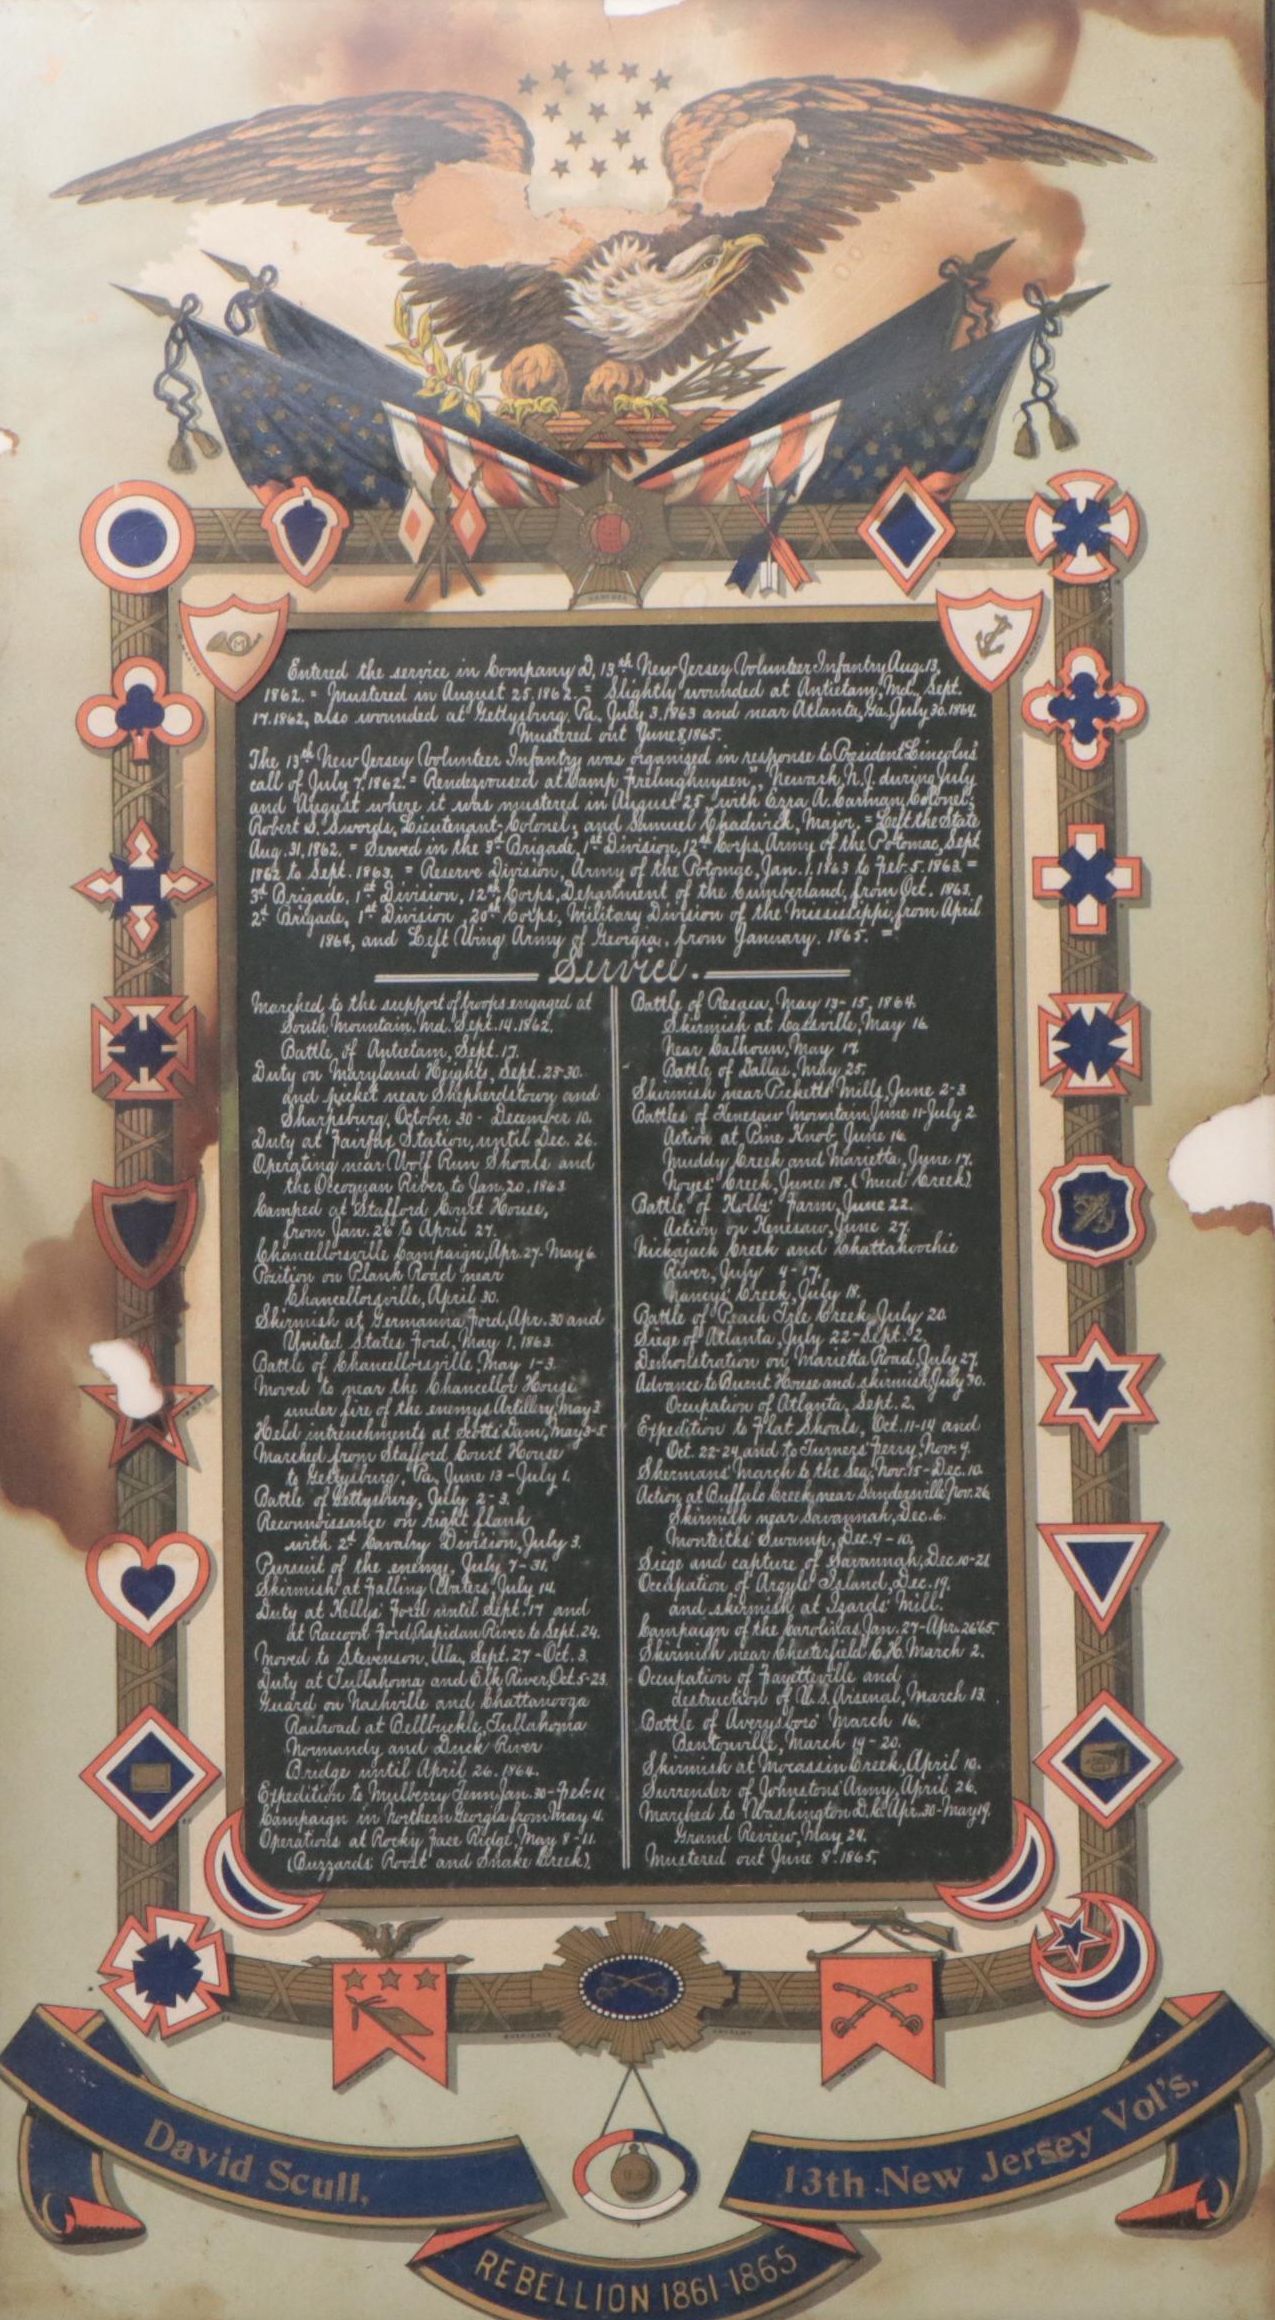 Entered the service in Company D, 13th New Jersey Volunteer Infantry Aug. 13,
1862. = Mustered in August 25. 1862. = Slightly wounded at Antietam, Md., Sept.
17. 1862, also wounded at Gettysburg, Pa., July 3. 1863 and near Atlanta, Ga., July 30. 1864.
Mustered out June 8, 1865.
The 13th New Jersey Volunteer Infantry was organized in response to President Lincolns'
call of July 7, 1862. = Rendezvoused at "Camp Frelinghuysen", Newark, N.J. during July
and August where it was mustered in August 25 with Ezra A. Carman, Colonel;
Robert S. Swords, Lieutenant-Colonel; and Samuel Chadwick, Major. = Left the State
Aug. 31, 1862. = Served in the 3d Brigade, 1st Division, 12th Corps, Army of the Potomac, Sept
1862 to Sept. 1863. = Reserve Division, Army of the Potomac, Jan. 1. 1863 to Feb. 5. 1863. =
3d Brigade, 1st Division, 12th Corps, Department of the Cumberland, from Oct. 1863.
2d Brigade, 1st Division, 20th Corps, Military Division of the Mississippi, from April
1864, and Left Wing Army of Georgia, from January. 1865. =
Service.
Marched to the support of troops engaged at
South Mountain, Md. Sept. 14. 1862.
Battle, of Antietam, Sept. 17.
Duty on Maryland Heights, Sept. 23-30.
and picket near Shepherdstown and
Sharpsburg, October 30 - December 10.
Duty at Fairfax Station, until Dec. 26.
Operating near Wolf Run Shoals and
the Occoquan River to Jan. 20. 1863
Camped at Stafford Court House,
from Jan. 26 to April 27.
Chancellorsville Campaign, Apr. 27-May 6
Position on Plank Road near
Chancellorsville, April 30.
Skirmish at Germanna Ford, Apr. 30 and
United States Ford, May 1, 1863
Battle of Chancellorsville, May 1-3.
Moved to near the Chancellor House
under fire of the enemys Artillery, May 3
Held intrenchments at Scotts' Dam, May 3-5
Marched from Stafford Court House
to Gettysburg, Pa., June 13 - July 1.
Battle of Gettysburg, July 2-3.
Reconnoissance on right flank
with 2d Cavalry Division, July 3.
Pursuit of the enemy, July 7-31.
Skirmish at Falling Waters, July 14
Duty at Kellys' Ford until Sept. 17 and
at Raccoon Ford, Rapidan River to Sept. 24.
Moved to Stevenson, Ala, Sept. 27 - Oct. 3.
Duty at Tullahoma and Elk River, Oct 5-23.
Guard on Nashville and Chattanooga
Railroad at Bellbuckle, Tullahoma
Normandy and Duck River
Bridge until April 26. 1864.
Expedition to Mulberry Tenn. Jan. 30-Feb. 11
Campaign in Northern Georgia from May 4.
Operations at Rocky Face Ridge, May 8-11.
(Buzzards' Roost and Snake Creek).
Battle of Resaca, May 13-15, 1864.
Skirmish at Cassville, May 16.
Near Calhoun, May 17
Battle of Dallas, May 25.
Skirmish near Picketts' Mills, June 2-3
Battles of Kenesaw Mountain, June 11-July 2.
Action at Pine Knob, June 16.
Muddy Creek and Marietta, June 17.
Noyes' Creek, June 18. (Mud Creek)
Battle of Kolbs' Farm, June 22.
Action on Kenesaw, June 27.
Nickajack Creek and Chattahoochie
River, July 4-17.
Nancys' Creek, July 18.
Battle of Peach Tree Creek, July 20
Siege of Atlanta, July 22-Sept. 2.
Demonstration on Marietta Road, July 27
Advance to Burnt House and skirmish, July 30.
Occupation of Atlanta, Sept. 2.
Expedition to Flat Shoals, Oct. 11-14 and
Oct. 22-24 and to Turners' Ferry, Nov. 9.
Shermans' March to the Sea, Nov. 15-Dec. 10.
Action at Buffalo Creek, near Sandersville, Nov. 26
Skirmish near Savannah, Dec. 6.
Monteiths' Swamp, Dec. 9-10.
Siege and capture of Savannah, Dec. 10-21
Occupation of Argyle Island, Dec. 19.
and skirmish at Izards' Mill.
Campaign of the Carolinas, Jan. 27-Apr. 26 '65.
Skirmish near Chesterfield C.H. March 2.
Occupation of Fayetteville and
destruction of U.S. Arsenal, March 13.
Battle of Averysboro' March 16.
Bentonville, March 19-20.
Skirmish at Mocassin Creek, April 10.
Surrender of Johnstons' Army, April 26.
Marched to Washington D.C. Apr. 30-May 19.
Grand Review, May 24.
Mustered out June 8. 1865.
David Scull,
13th New Jersey Vol's.
REBELLION 1861-1865